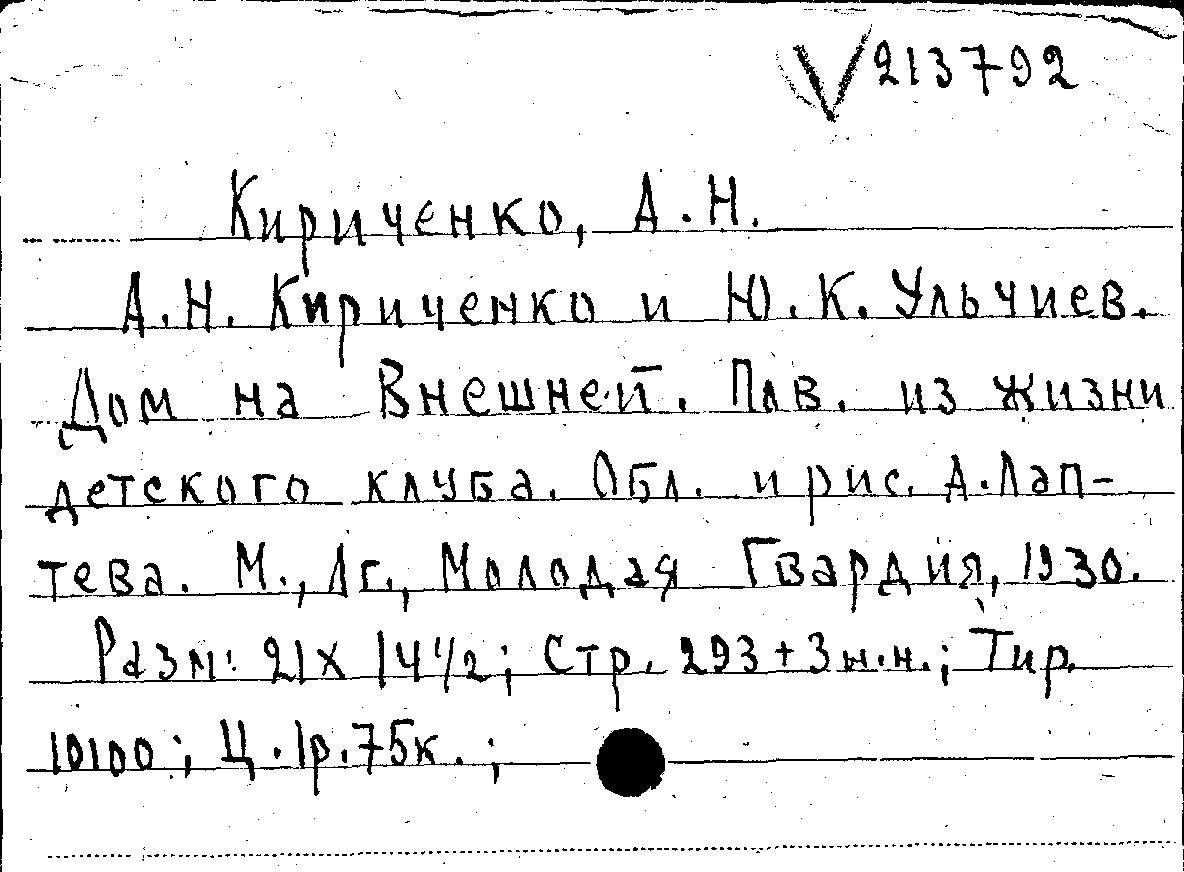 V 213792
Кириченко, А.Н.
А.Н. Кириченко и Ю.К. Ульчиев.
Дом на Внешней. Пов. из жизни
детского клуба. Обл. и рис. А. Лап-
тева. М., Лг., Молодая Гвардия, 1930.
Разм: 21 х 14 1/2; Стр. 293 + 3 н.н.; Тир.
10100; Ц. 1р. 75к. ;